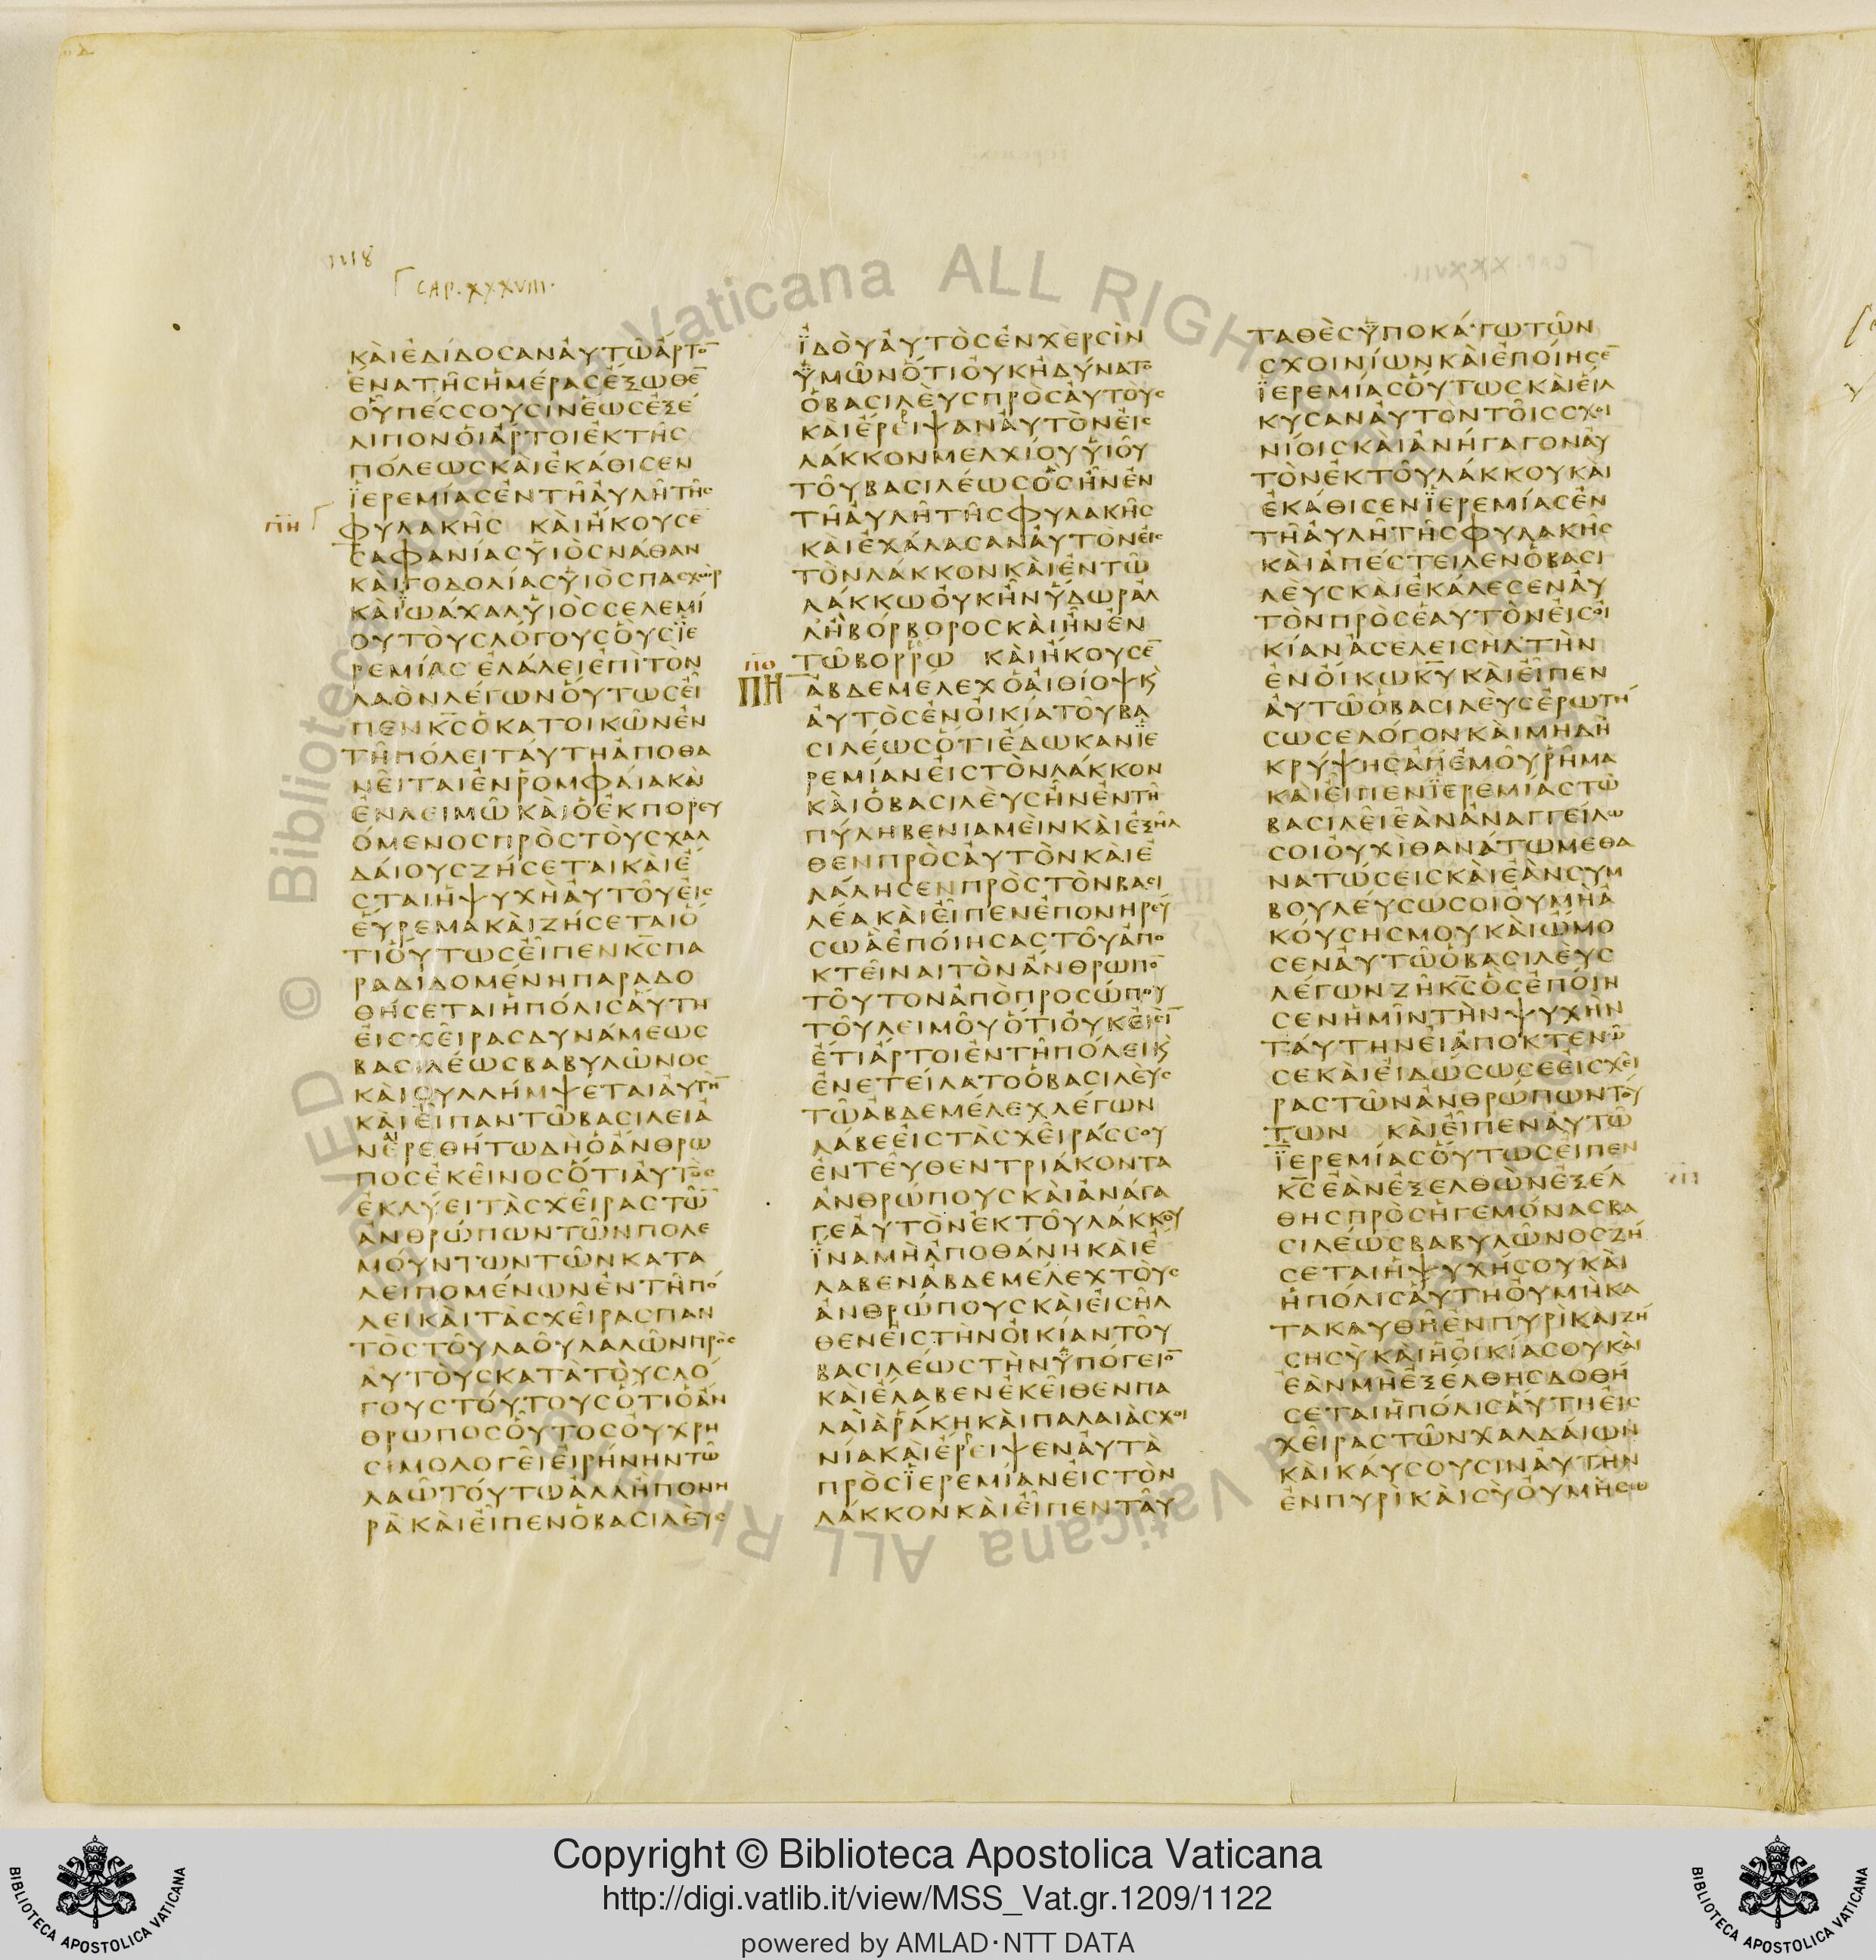 1118
CAP. XXXVIII.
ΚΑΙΕΔΙΔΟΣΑΝΑΥΤΩΑΡΤΟ̅
ΕΝΑΤΗΣΗΜΕΡΑΣΕΞΩΘΕ̅
ΟΥΠΕΣΣΟΥΣΙΝΕΩΣΕΞΕ
ΛΙΠΟΝΟΙΑΡΤΟΙΕΚΤΗΣ
ΠΟΛΕΩΣΚΑΙΕΚΑΘΙΣΕΝ
ΪΕΡΕΜΙΑΣΕΝΤΗΑΥΛΗΤΗΣ
ΠΗ ΦΥΛΑΚΗΣ ΚΑΙΗΚΟΥΣΕ̅
ΣΑΦΑΝΙΑΣΥΙΟΣΝΑΘΑΝ
ΚΑΙΓΟΔΟΛΙΑΣΥΙΟΣΠΑΣΧΩΡ
ΚΑΙΪΩΑΧΑΛΥΙΟΣΣΕΛΕΜΙ
ΟΥΤΟΥΣΛΟΓΟΥΣΟΥΣΪΕ
ΡΕΜΙΑΣ ΕΛΑΛΕΙΕΠΙΤΟΝ
ΛΑΟΝΛΕΓΩΝΟΥΤΩΣΕΙ
ΠΕΝΚ̅Σ̅ΟΚΑΤΟΙΚΩΝΕΝ
ΤΗΠΟΛΕΙΤΑΥΤΗΑΠΟΘΑ
ΝΕΙΤΑΙΕΝΡΟΜΦΑΙΑΚΑΙ
ΕΝΛΕΙΜΩΚΑΙΟΕΚΠΟΡΕΥ
ΟΜΕΝΟΣΠΡΟΣΤΟΥΣΧΑΛ
ΔΑΙΟΥΣΖΗΣΕΤΑΙΚΑΙΕ
ΣΤΑΙΗΨΥΧΗΑΥΤΟΥΕΙΣ
ΕΥΡΕΜΑΚΑΙΖΗΣΕΤΑΙΟ
ΤΙΟΥΤΩΣΕΙΠΕΝΚ̅Σ̅ΠΑ
ΡΑΔΙΔΟΜΕΝΗΠΑΡΑΔΟ
ΘΗΣΕΤΑΙΗΠΟΛΙΣΑΥΤΗ
ΕΙΣΧΕΙΡΑΣΔΥΝΑΜΕΩΣ
ΒΑΣΙΛΕΩΣΒΑΒΥΛΩΝΟΣ
ΚΑΙΣΥΛΛΗΜΨΕΤΑΙΑΥΤΗ̅
ΚΑΙΕΙΠΑΝΤΩΒΑΣΙΛΕΙΑ
ΝΕΡΕΘΗΤΩΔΗΟΑΝΘΡΩ
ΠΟΣΕΚΕΙΝΟΣΟΤΙΑΥΤΟΣ
ΕΚΛΥΕΙΤΑΣΧΕΙΡΑΣΤΩ̅
ΑΝΘΡΩΠΩΝΤΩΝΠΟΛΕ
ΜΟΥΝΤΩΝΤΩΝΚΑΤΑ
ΛΕΙΠΟΜΕΝΩΝΕΝΤΗΠΟ
ΛΕΙΚΑΙΤΑΣΧΕΙΡΑΣΠΑΝ
ΤΟΣΤΟΥΛΑΟΥΛΑΛΩΝΠΡΟΣ
ΑΥΤΟΥΣΚΑΤΑΤΟΥΣΛΟ
ΓΟΥΣΤΟΥΤΟΥΣΟΤΙΟΑΝ
ΘΡΩΠΟΣΟΥΤΟΣΟΥΧΡΗ
ΣΜΟΛΟΓΕΙΕΙΡΗΝΗΝΤΩ
ΛΑΩΤΟΥΤΩΑΛΛΗΠΟΝΗ
ΡΑΚΑΙΕΙΠΕΝΟΒΑΣΙΛΕΥΣ
ΪΔΟΥΑΥΤΟΣΕΝΧΕΡΣΙΝ
ΥΜΩΝΟΤΙΟΥΚΗΔΥΝΑΤΟ
ΟΒΑΣΙΛΕΥΣΠΡΟΣΑΥΤΟΥΣ
ΚΑΙΕΡΕΙΨΑΝΑΥΤΟΝΕΙΣ
ΛΑΚΚΟΝΜΕΛΧΙΟΥΥΙΟΥ
ΤΟΥΒΑΣΙΛΕΩΣΟΣΗΝΕΝ
ΤΗΑΥΛΗΤΗΣΦΥΛΑΚΗΣ
ΚΑΙΕΧΑΛΑΣΑΝΑΥΤΟΝΕΙΣ
ΤΟΝΛΑΚΚΟΝΚΑΙΕΝΤΩ
ΛΑΚΚΩΟΥΚΗΝΥΔΩΡΑΛ
ΛΗΒΟΡΒΟΡΟΣΚΑΙΗΝΕΝ
ΠΘ ΤΩΒΟΡΡΩ ΚΑΙΗΚΟΥΣΕ̅
ΠΗ ΑΒΔΕΜΕΛΕΧΟΑΙΘΙΟΨϏ
ΑΥΤΟΣΕΝΟΙΚΙΑΤΟΥΒΑ
ΣΙΛΕΩΣΟΤΙΕΔΩΚΑΝΪΕ
ΡΕΜΙΑΝΕΙΣΤΟΝΛΑΚΚΟΝ
ΚΑΙΟΒΑΣΙΛΕΥΣΗΝΕΝΤΗ
ΠΥΛΗΒΕΝΙΑΜΕΙΝΚΑΙΕΞΗΛ
ΘΕΝΠΡΟΣΑΥΤΟΝΚΑΙΕ
ΛΑΛΗΣΕΝΠΡΟΣΤΟΝΒΑΣΙ
ΛΕΑΚΑΙΕΙΠΕΝΕΠΟΝΗΡΕΥ
ΣΩΑΕΠΟΙΗΣΑΣΤΟΥΑΠΟ
ΚΤΕΙΝΑΙΤΟΝΑΝΘΡΩΠΟ̅
ΤΟΥΤΟΝΑΠΟΠΡΟΣΩΠΟΥ
ΤΟΥΛΕΙΜΟΥΟΤΙΟΥΚΕΙΣΙ̅
ΕΤΙΑΡΤΟΙΕΝΤΗΠΟΛΕΙϏ
ΕΝΕΤΕΙΛΑΤΟΟΒΑΣΙΛΕΥΣ
ΤΩΑΒΔΕΜΕΛΕΧΛΕΓΩΝ
ΛΑΒΕΕΙΣΤΑΣΧΕΙΡΑΣΣΟΥ
ΕΝΤΕΥΘΕΝΤΡΙΑΚΟΝΤΑ
ΑΝΘΡΩΠΟΥΣΚΑΙΑΝΑΓΑ
ΓΕΑΥΤΟΝΕΚΤΟΥΛΑΚΚΟΥ
ΪΝΑΜΗΑΠΟΘΑΝΗΚΑΙΕ
ΛΑΒΕΝΑΒΔΕΜΕΛΕΧΤΟΥΣ
ΑΝΘΡΩΠΟΥΣΚΑΙΕΙΣΗΛ
ΘΕΝΕΙΣΤΗΝΟΙΚΙΑΝΤΟΥ
ΒΑΣΙΛΕΩΣΤΗΝΫΠΟΓΕΙΟ̅
ΚΑΙΕΛΑΒΕΝΕΚΕΙΘΕΝΠΑ
ΛΑΙΑΡΑΚΗΚΑΙΠΑΛΑΙΑΣΧΟΙ
ΝΙΑΚΑΙΕΡΕΙΨΕΝΑΥΤΑ
ΠΡΟΣΪΕΡΕΜΙΑΝΕΙΣΤΟΝ
ΛΑΚΚΟΝΚΑΙΕΙΠΕΝΤΑΥ
ΤΑΘΕΣΫΠΟΚΑΤΩΤΩΝ
ΣΧΟΙΝΙΩΝΚΑΙΕΠΟΙΗΣΕ̅
ΪΕΡΕΜΙΑΣΟΥΤΩΣΚΑΙΕΙΛ
ΚΥΣΑΝΑΥΤΟΝΤΟΙΣΣΧΟΙ
ΝΙΟΙΣΚΑΙΑΝΗΓΑΓΟΝΑΥ
ΤΟΝΕΚΤΟΥΛΑΚΚΟΥΚΑΙ
ΕΚΑΘΙΣΕΝΪΕΡΕΜΙΑΣΕΝ
ΤΗΑΥΛΗΤΗΣΦΥΛΑΚΗΣ
ΚΑΙΑΠΕΣΤΕΙΛΕΝΟΒΑΣΙ
ΛΕΥΣΚΑΙΕΚΑΛΕΣΕΝΑΥ
ΤΟΝΠΡΟΣΕΑΥΤΟΝΕΙΣΟΙ
ΚΙΑΝΑΣΕΛΕΙΣΗΛΤΗΝ
ΕΝΟΙΚΩΚ̅Υ̅ΚΑΙΕΙΠΕΝ
ΑΥΤΩΟΒΑΣΙΛΕΥΣΕΡΩΤΗ
ΣΩΣΕΛΟΓΟΝΚΑΙΜΗΔΗ
ΚΡΥΨΗΣΑΠΕΜΟΥΡΗΜΑ
ΚΑΙΕΙΠΕΝΪΕΡΕΜΙΑΣΤΩ
ΒΑΣΙΛΕΙΕΑΝΑΝΑΓΓΕΙΛΩ
ΣΟΙΟΥΧΙΘΑΝΑΤΩΜΕΘΑ
ΝΑΤΩΣΕΙΣΚΑΙΕΑΝΣΥΜ
ΒΟΥΛΕΥΣΩΣΟΙΟΥΜΗΑ
ΚΟΥΣΗΣΜΟΥΚΑΙΩΜΟ
ΣΕΝΑΥΤΩΟΒΑΣΙΛΕΥΣ
ΛΕΓΩΝΖΗΚ̅Σ̅ΟΣΕΠΟΙΗ
ΣΕΝΗΜΙΝΤΗΝΨΥΧΗΝ
ΤΑΥΤΗΝΕΙΑΠΟΚΤΕΝΩ
ΣΕΚΑΙΕΙΔΩΣΩΣΕΕΙΣΧΕΙ
ΡΑΣΤΩΝΑΝΘΡΩΠΩΝΤΟΥ
ΤΩΝ ΚΑΙΕΙΠΕΝΑΥΤΩ
ΪΕΡΕΜΙΑΣΟΥΤΩΣΕΙΠΕΝ
Κ̅Σ̅ΕΑΝΕΞΕΛΘΩΝΕΞΕΛ
ΘΗΣΠΡΟΣΗΓΕΜΟΝΑΣΒΑ
ΣΙΛΕΩΣΒΑΒΥΛΩΝΟΣΖΗ
ΣΕΤΑΙΗΨΥΧΗΣΟΥΚΑΙ
ΗΠΟΛΙΣΑΥΤΗΟΥΜΗΚΑ
ΤΑΚΑΥΘΗΕΝΠΥΡΙΚΑΙΖΗ
ΣΗΣΥΚΑΙΗΟΙΚΙΑΣΟΥΚΑΙ
ΕΑΝΜΗΕΞΕΛΘΗΣΔΟΘΗ
ΣΕΤΑΙΗΠΟΛΙΣΑΥΤΗΕΙΣ
ΧΕΙΡΑΣΤΩΝΧΑΛΔΑΙΩΝ
ΚΑΙΚΑΥΣΟΥΣΙΝΑΥΤΗΝ
ΕΝΠΥΡΙΚΑΙΣΥΟΥΜΗΣΩ
Copyright © Biblioteca Apostolica Vaticana
http://digi.vatlib.it/view/MSS_Vat.gr.1209/1122
powered by AMLAD·NTT DATA
BIBLIOTECA APOSTOLICA VATICANA
BIBLIOTECA APOSTOLICA VATICANA